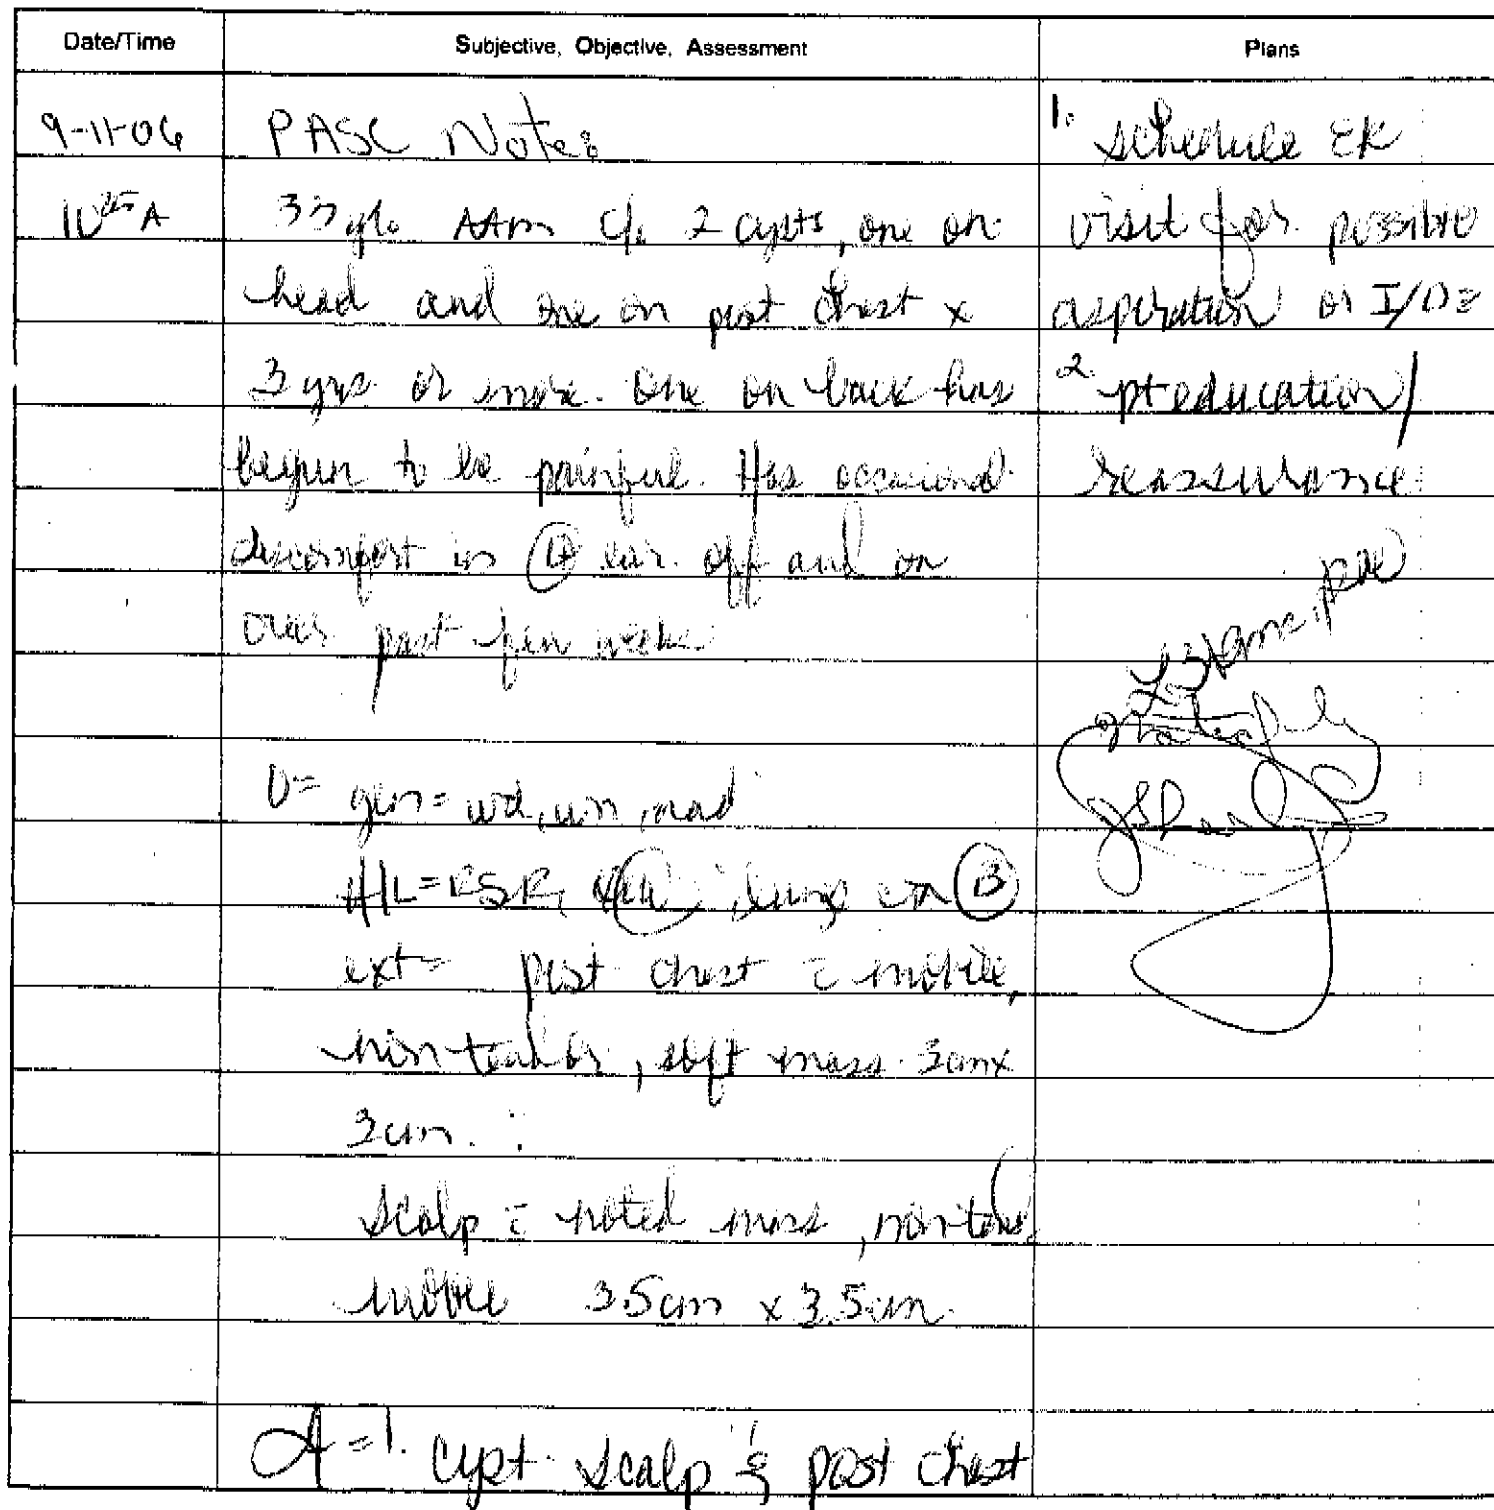 Date/Time Subjective, Objective, Assessment Plans
9-11-06 PASC Notes 1. schedule ER
10 25 A 33 y/o AAm c/o 2 cysts, one on visit for possible
head and one on post chest x aspiration or I/D
3 yrs or more. One on back has 2. pt education/
begun to be painful. Has occasional reassurance
discomfort in ear off and on
over past few weeks
O= gen= wd, wn, nad
H/L= RSR, lungs cta (B)
ext= post chest c̄ mobile,
non tender, soft mass 3cm x
3cm.
Scalp c̄ noted mass, nontend,
mobile 3.5cm x 3.5cm
A=1. cyst scalp & post chest